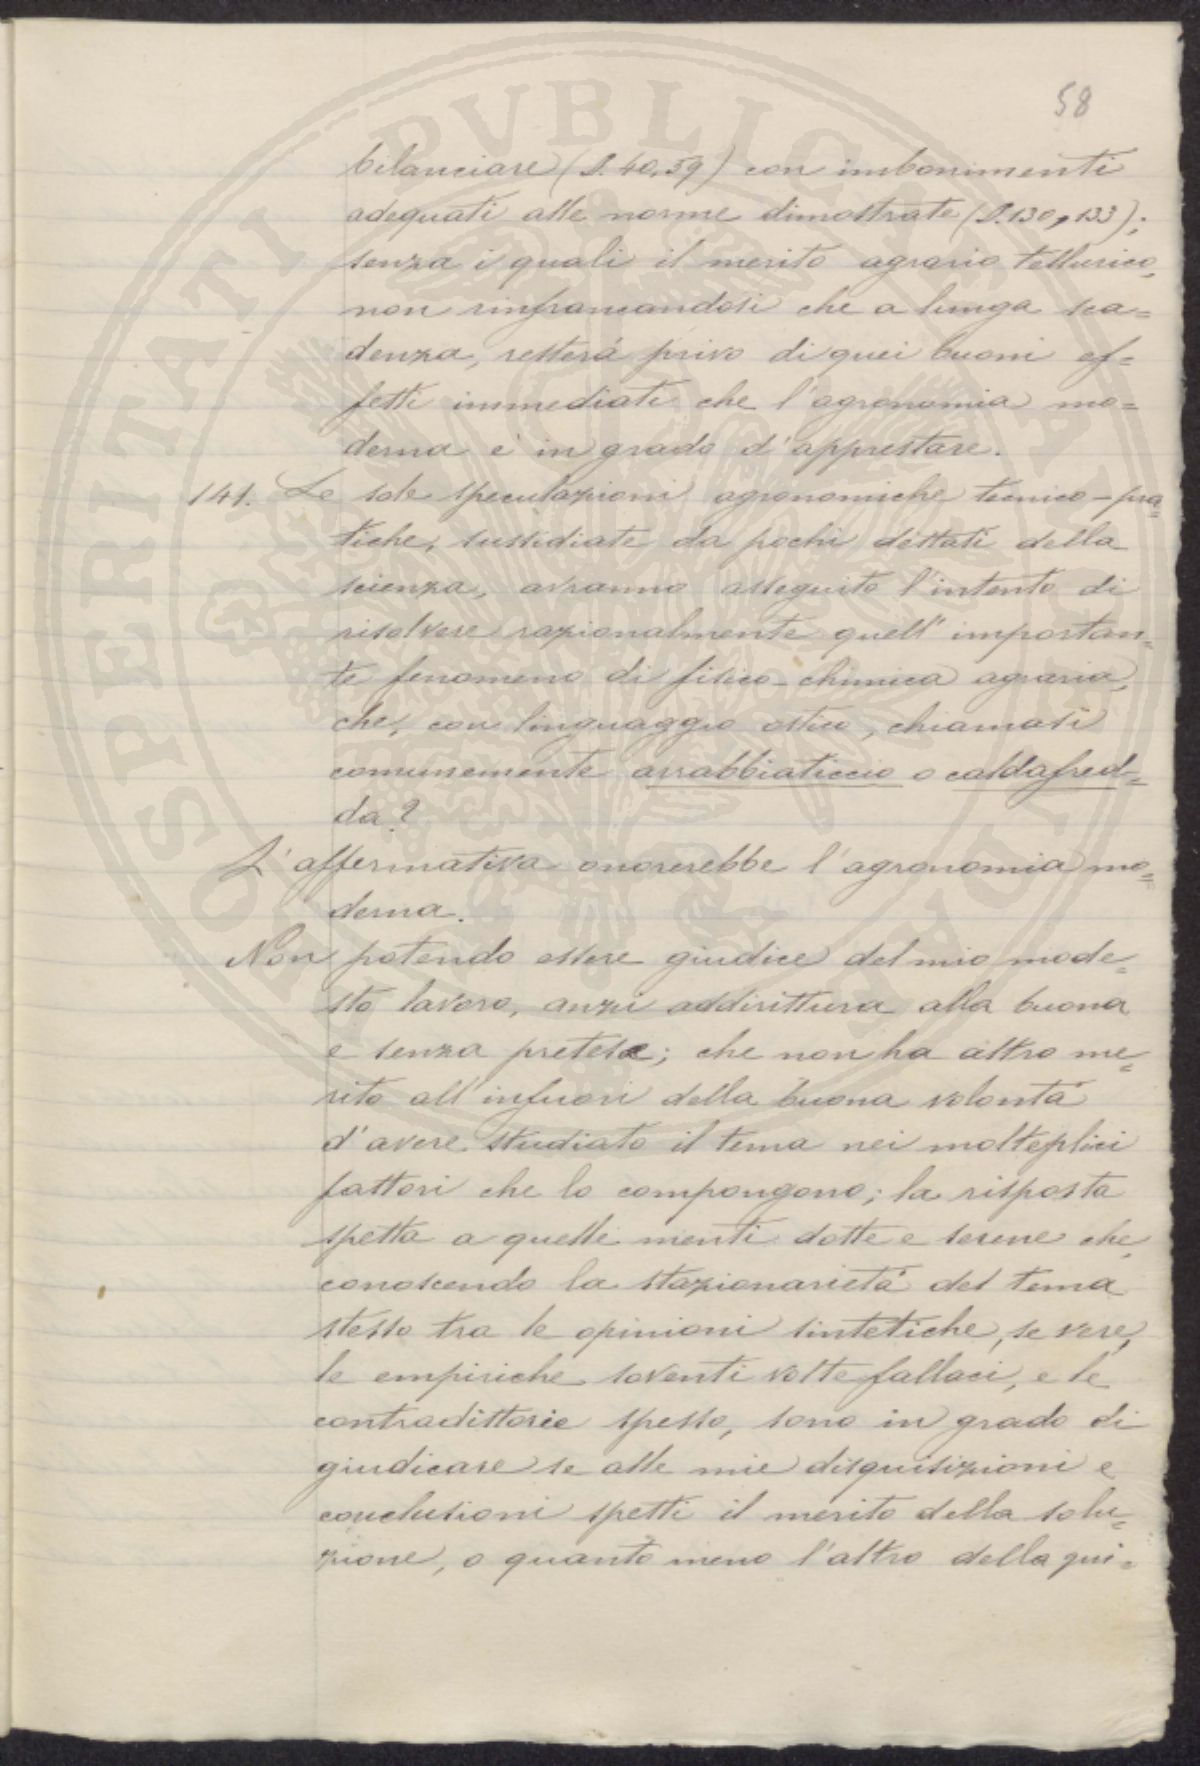 58
bilanciare (§. 40, 59) con imbonimenti
adeguati alle norme dimostrate (§. 130, 133);
senza i quali il merito agrario tellurico,
non rinfrancandosi che a lunga sca=
denza, resterà privo di quei buoni ef=
fetti immediati che l'agronomia mo=
derna è in grado d'apprestare.
141. Le sole speculazioni agronomiche tecnico-pra=
tiche, sussidiate da pochi dettati della
scienza, avranno asseguito l'intento di
risolvere razionalmente quell'importan=
te fenomeno di fisico-chimica agraria,
che, con linguaggio ostico, chiamasi
comunemente arrabbiaticcio o caldafred=
da?
L'affermativa onorerebbe l'agronomia mo=
derna.
Non potendo essere giudice del mio mode=
sto lavoro, anzi addirittura alla buona
e senza pretese; che non ha altro me=
rito all'infuori della buona volontà
d'avere studiato il tema nei molteplici
fattori che lo compongono; la risposta
spetta a quelle menti dotte e serene che,
conoscendo la stazionarietà del tema
stesso tra le opinioni sintetiche, se vere,
le empiriche soventi volte fallaci, e le
contradittorie spesso, sono in grado di
giudicare se alle mie disquisizioni e
conclusioni spetti il merito della solu=
zione, o quanto meno l'altro della qui=
PROSPERITATI PVBLICAE